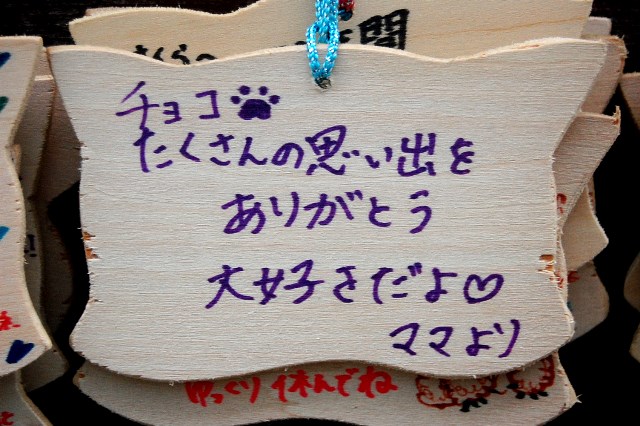 さくらの
間
チョコ🐾
たくさんの思い出を
ありがとう
大好きだよ♡
ママより
ゆっくり休んでね